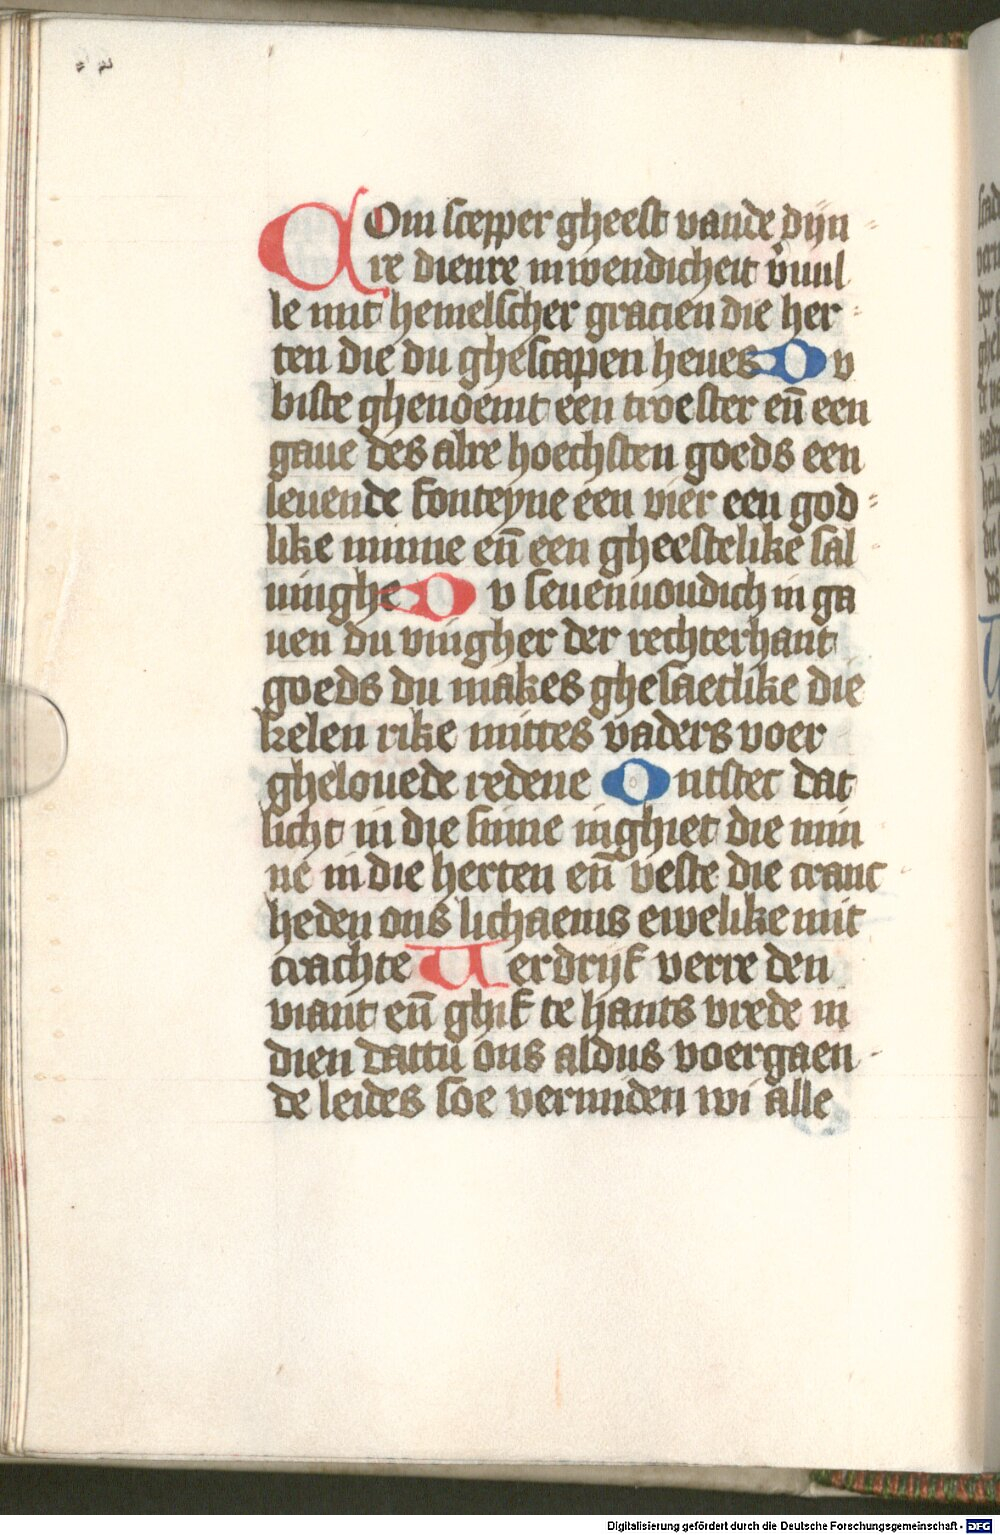 COm scepper gheest vande dijn
re dienre inwendicheit v̾uul
le mit hemelscher gracien die her
ten die du ghescapen heues Du
biste ghenoemt een troester en̄ een
gaue des alre hoechsten goeds een
leuende fonteyne een vier een god
like minne en̄ een gheestelike sal
uinghe Du seuenuoudich in ga
uen du vingher der rechterhant
goeds du makes ghesaetlike die
kelen rike mittes vaders voer
ghelouede redene Ontstec dat
licht in die sinne inghiet die min
ne in die herten en̄ veste die cranc
heden ons lichaems ewelike mit
crachte Uerdrijf verre den
viant en̄ ghif te hants vrede in
dien dattu ons aldus voergaen
de leides soe vermiden wi alle
Digitalisierung gefördert durch die Deutsche Forschungsgemeinschaft - DFG